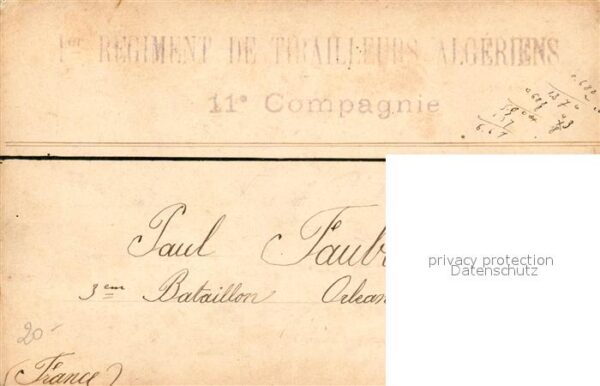 1er REGIMENT DE TIRAILLEURS ALGÉRIENS
11e Compagnie
privacy protection
Datenschutz
Paul Faub
3em Bataillon Orlean
20-
(France)